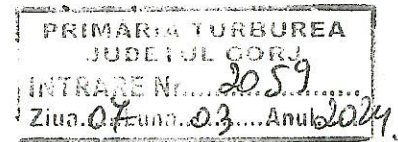 PRIMĂRIA TURBUREA
JUDEȚUL GORJ
INTRARE Nr. 2059
Ziua 07 luna 03 Anul 2024